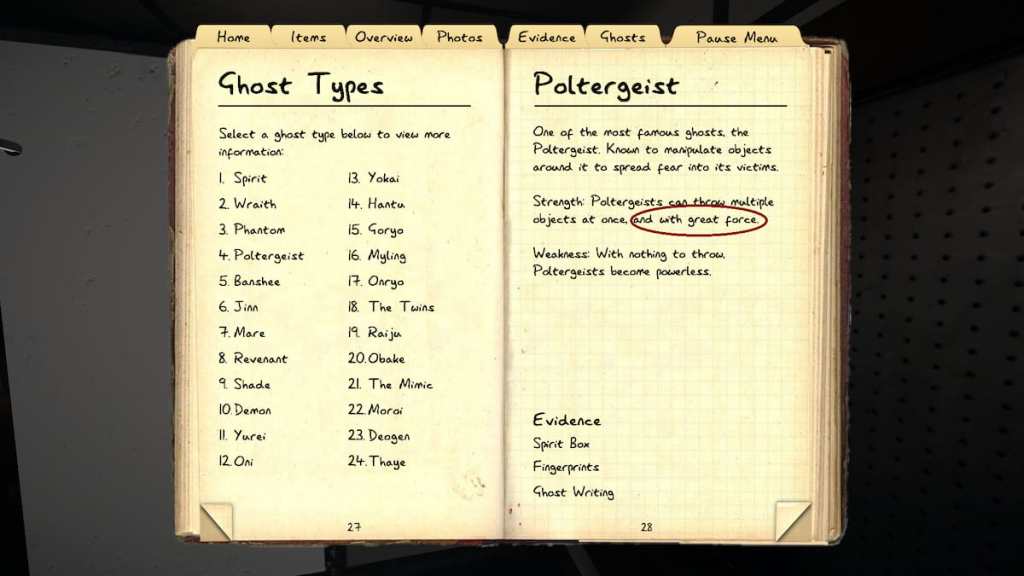 Home Items Overview Photos Evidence Ghosts Pause Menu
Ghost Types
Select a ghost type below to view more
information:
1. Spirit
2. Wraith
3. Phantom
4. Poltergeist
5. Banshee
6. Jinn
7. Mare
8. Revenant
9. Shade
10. Demon
11. Yurei
12. Oni
13. Yokai
14. Hantu
15. Goryo
16. Myling
17. Onryo
18. The Twins
19. Raiju
20. Obake
21. The Mimic
22. Moroi
23. Deogen
24. Thaye
27
Poltergeist
One of the most famous ghosts, the
Poltergeist. Known to manipulate objects
around it to spread fear into its victims.
Strength: Poltergeists can throw multiple
objects at once, and with great force.
Weakness: With nothing to throw,
Poltergeists become powerless.
Evidence
Spirit Box
Fingerprints
Ghost Writing
28